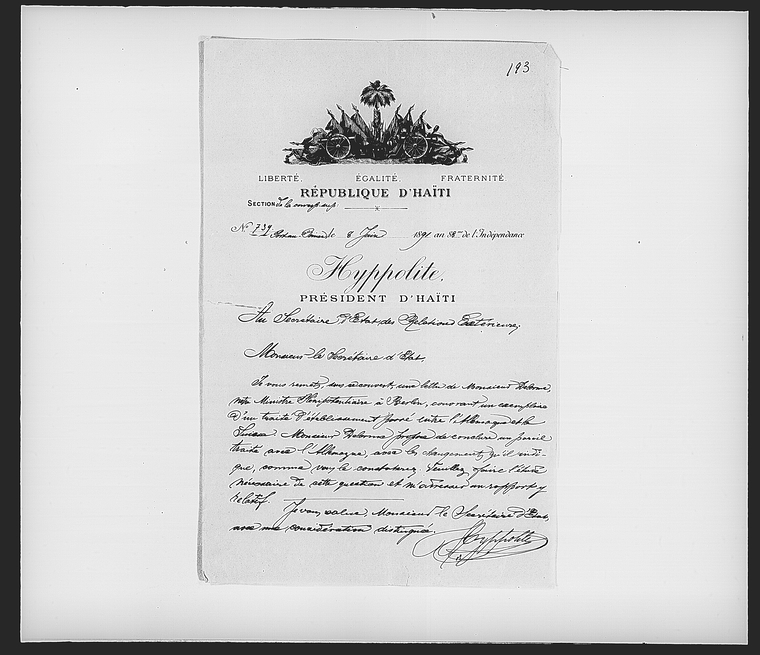 193
LIBERTÉ. ÉGALITÉ. FRATERNITÉ.
RÉPUBLIQUE D'HAÏTI
SECTION de la
N° 739 Port au Prince, le 8 Juin 1891 an 88me de l'Indépendance
Hyppolite,
PRÉSIDENT D'HAÏTI
Au Secrétaire d'Etat des Relations Exterieures,
Monsieur le Secrétaire d'Etat,
Je vous remets, sous ce couvert, une lettre de Monsieur Delorme,
notre Ministre Plénipotentiaire à Berlin, couvrant un exemplaire
d'un traité d'établissement passé entre l'Allemagne et la
Suisse. Monsieur Delorme propose de conclure un pareil
traité avec l'Allemagne, avec les changements qu'il indi-
que, comme vous le constaterez. Veuillez faire l'étude
nécessaire de cette question et m'adresser un rapport y
relatif.
Je vous salue, Monsieur le Secrétaire d'Etat,
avec une considération distinguée.
Hyppolite